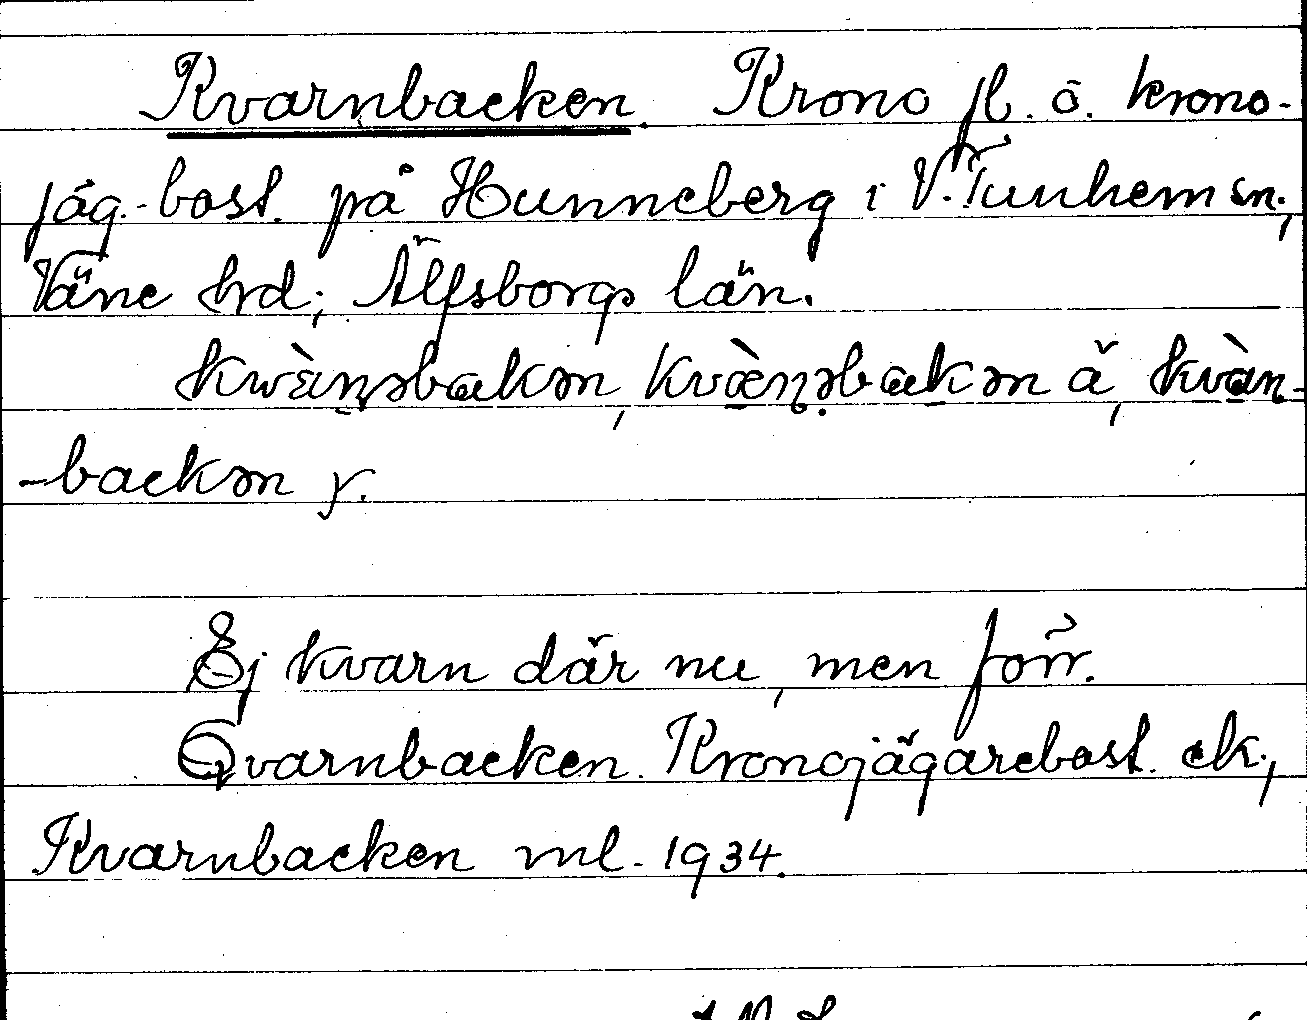 Kvarnbacken. Krono fl. o. krono-
jäg.-bost. på Hunneberg i V. Tunhem sn.,
Väne hrd; Älfsborgs län.
kwæ̀ṇəbakən, kvæ̀ṇəbakən ä, kvàn-
-backən y.
Ej kvarn där nu, men förr.
Qvarnbacken. Kronojägarebost. ek.,
Kvarnbacken ml. 1934.